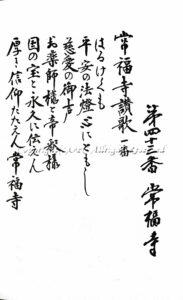 第四十三番 常福寺
常福寺讃歌一番
はるけくも
平安の法燈心にともし
慈愛の御声
お薬師様と帝釈様
国の宝と永久に伝えん
厚き信仰たたえん常福寺